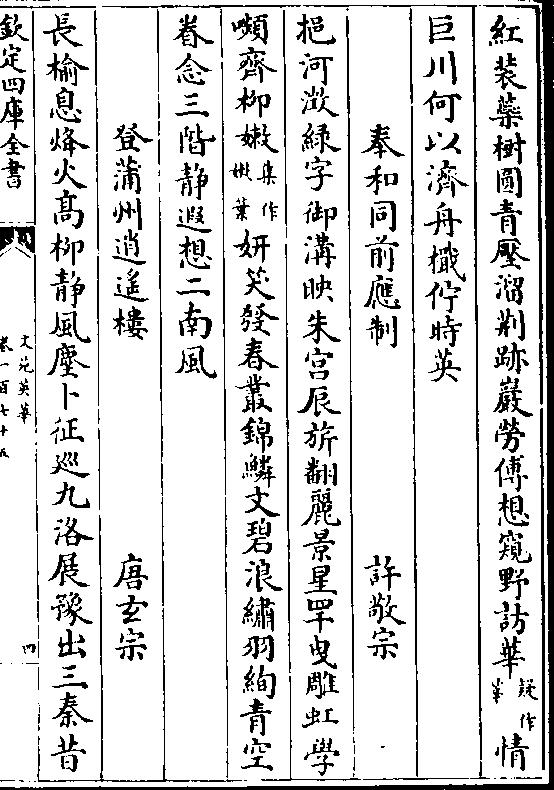 紅裝蘂樹圓青壓溜荆跡巖勞傅想窺野訪華疑作莘情
巨川何以濟舟檝佇時英
奉和同前應制 許敬宗
挹河澂綠字御溝映朱宫辰旂翻麗景星罕曳雕虹學
嚬齊柳嫩集作嫰葉妍笑發春叢錦鱗文碧浪繡羽絢青空
眷念三階靜遐想二南風
登蒲州逍遙樓 唐玄宗
長榆息烽火高柳靜風塵卜征巡九洛展豫出三秦昔
欽定四庫全書
文苑英華
卷一百七十五
四